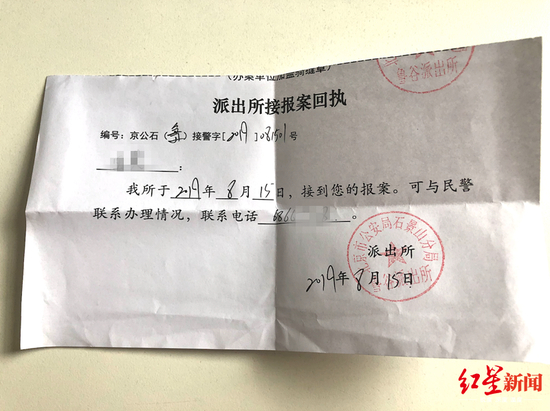 (办案单位加盖骑缝章)
谷派出所
派出所接报案回执
编号：京公石（鲁）接警字[2019]081501号
：
我所于2019年8月15日，接到您的报案。可与民警
联系办理情况，联系电话686。
北京市公安局石景山分局
派出所
2019年8月15日
红星新闻